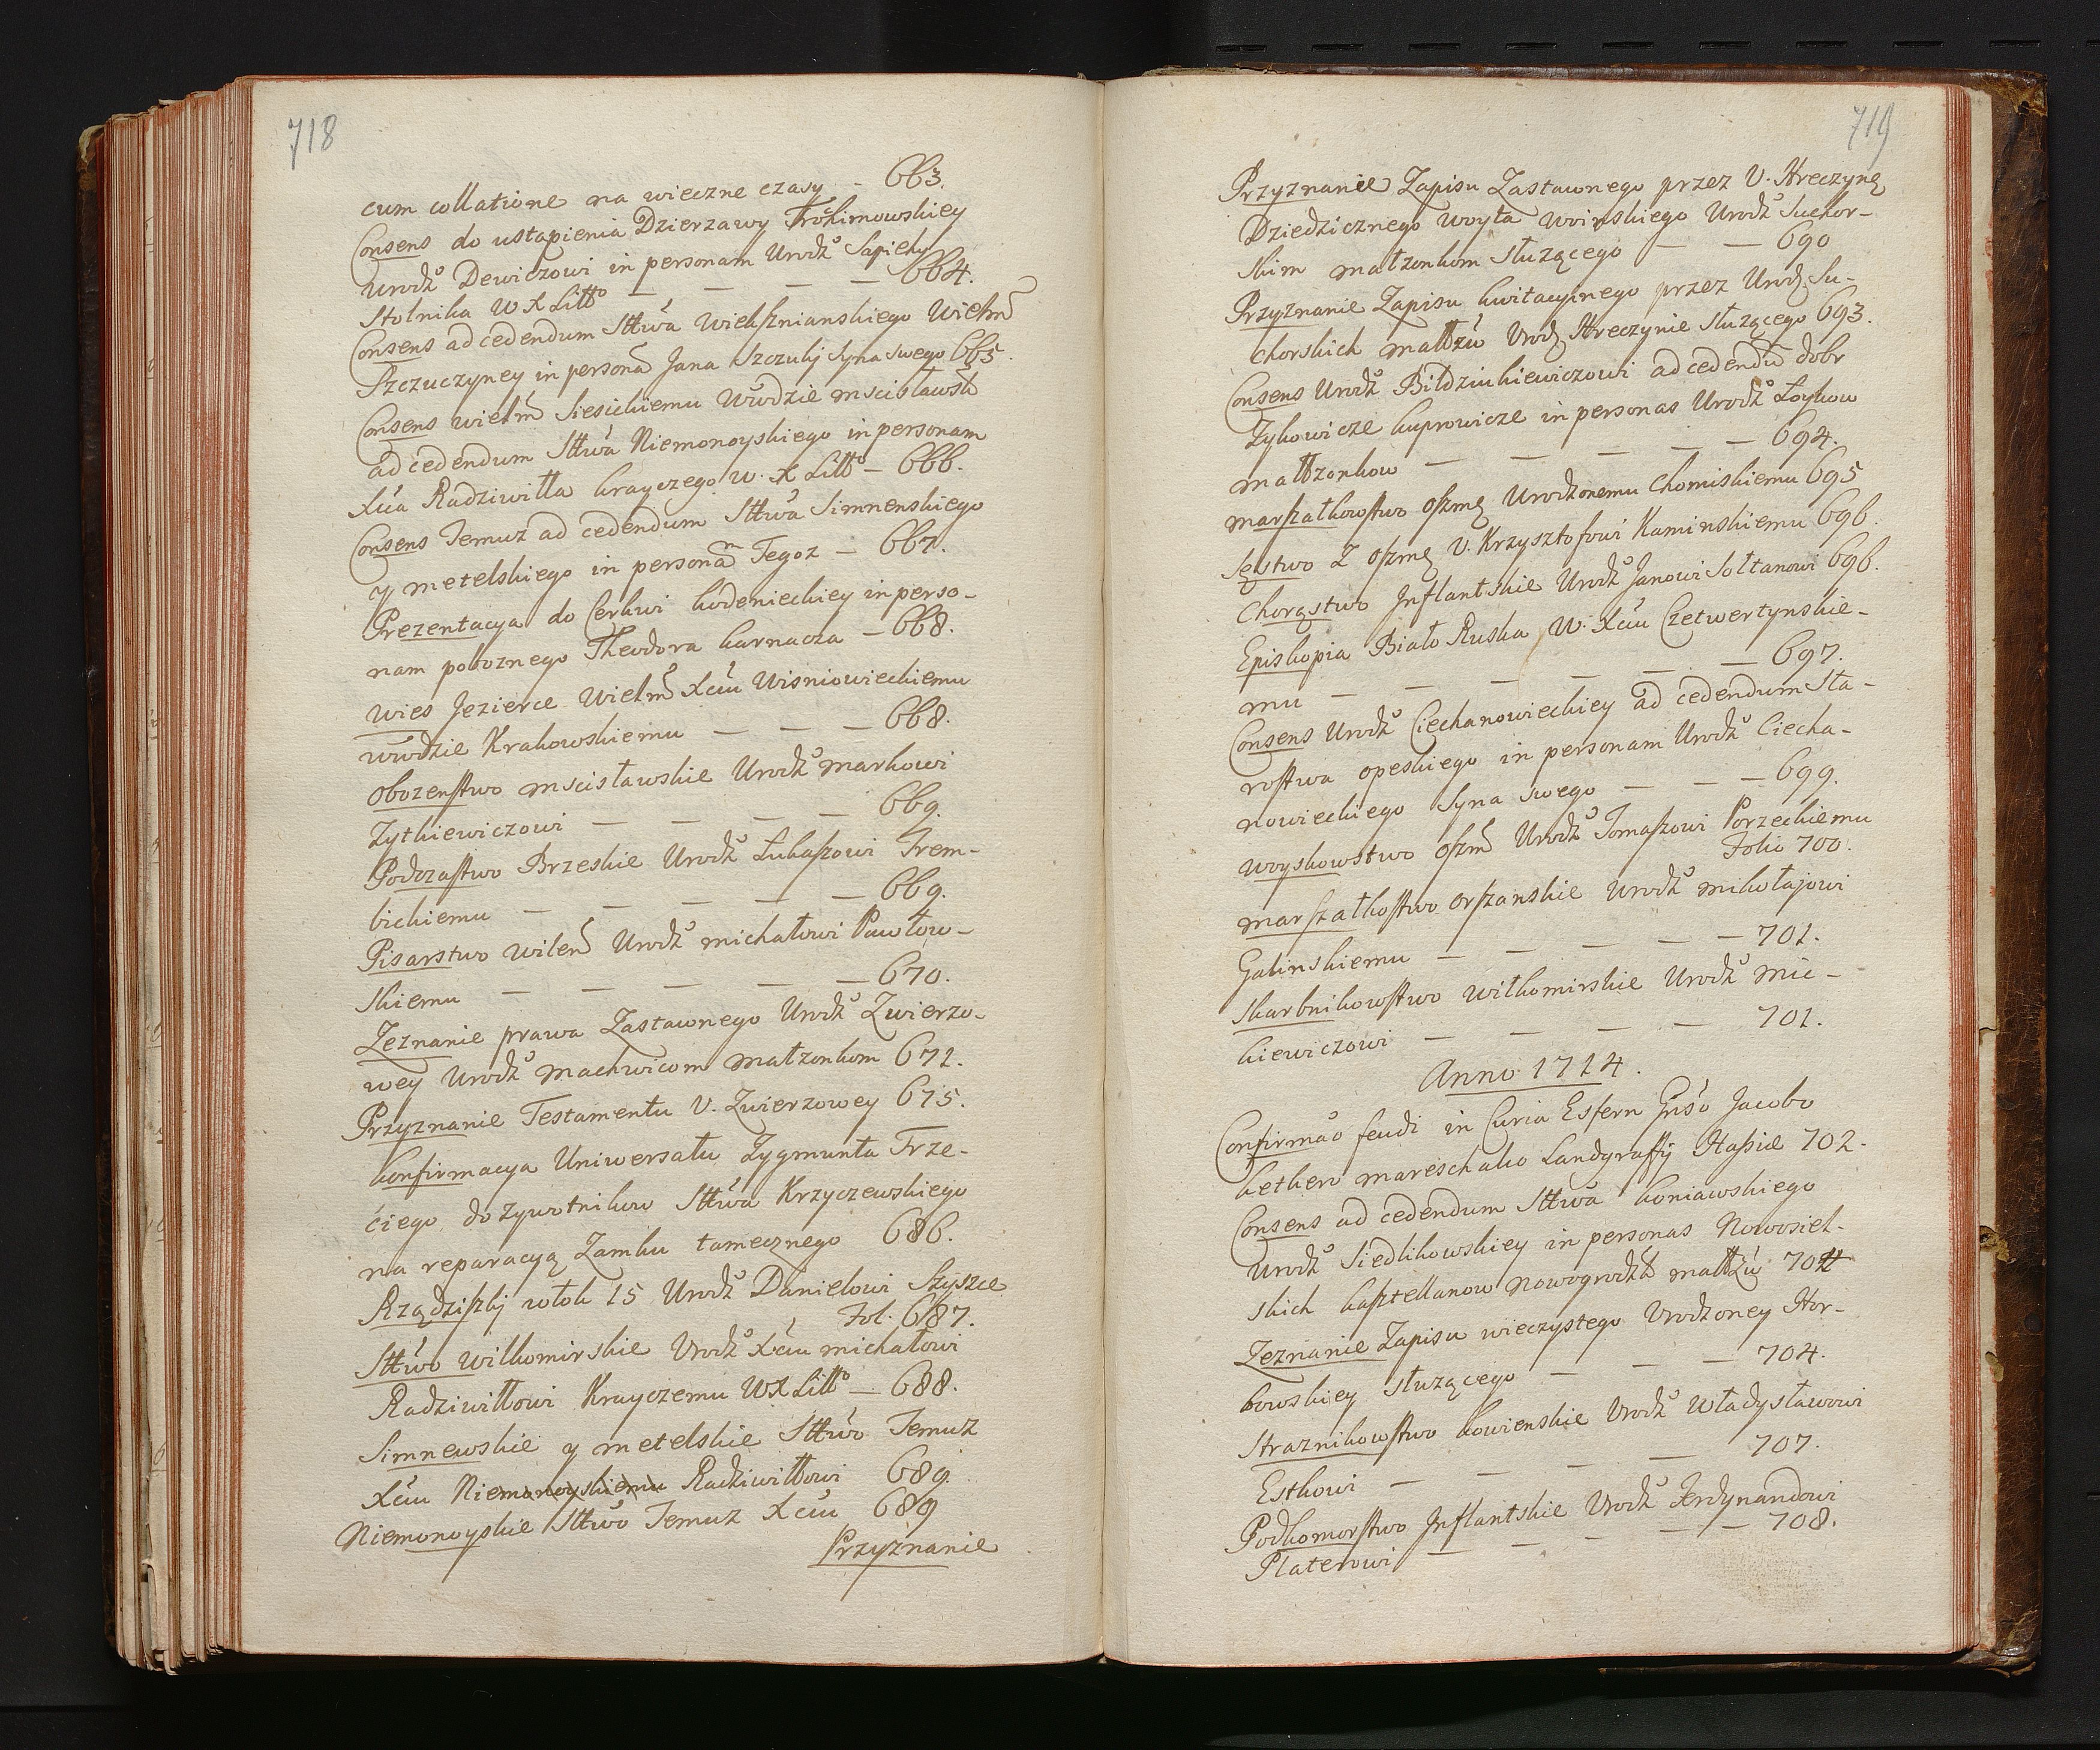 718
cum collatione na wieczne czasy - 663.
Consens do ustąpienia Dzierzawy Trochimowskiey
Urodź Dewiczowi in personam Urodź Sapiehy
Stolnika W X Litto — — — — 664.
Consens ad cedendum Sttwa Wieksznianskiego Wielm
Szczuczyney in persona Jana Szczuki Syna Swego 665.
Consens wielm Siesickiemu Wwdzie mscisławsk
ad cedendum Sttwa Niemonoyskiego in personam
Xcia Radziwiłła krayczego w. X Litto — 666.
Consens Temuz ad cedendum Sttwa Simnenskiego
y metelskiego in personam Tegoz — 667.
Prezentacya do Cerkwi kodenieckiey in perso-
nam poboznego Theodora karnacza — 668.
wies Jezierce Wielm Xciu Wisniowieckiemu
wwdzie Krakowskiemu — — — 668.
obozenstwo mscisławskie Urodź markowi
Zytkiewiczowi — — — — 669.
Podczastwo Brzeskie Urodź Łukaszowi Trem-
bickiemu — — — — — 669.
Pisarstwo wilen Urodź michałowi Pawłow-
skiemu — — — — — 670.
Zeznanie prawa Zastawnego Urodź Zwierzo-
wey Urodź machwicom małzonkom 672.
Przyznanie Testamentu U. Zwierzowey 675.
konfirmacya Uniwersału Zygmunta Trze-
ciego dozywotnikow Sttwa Krzyczewskiego
na reparacyą Zamku tamecznego 686.
Rządziszki włok 15 Urodź Danielowi Szyszce
Fol. 687.
Sttwo wilkomirskie Urodź Xciu michałowi
Radziwiłłowi Krayczemu W X Litto — 688.
Simnewskie y metelskie Sttwo Temuz
Xciu Niemonoyskiemu Radziwiłłowi 689.
Niemonoyskie Sttwo Temuz Xciu 689
Przyznanie
719
Przyznanie Zapisu Zastawnego przez U. Hreczynę
Dziedzicznego woyta woinskiego Urodź Suchor-
skim małzonkom słuzącego — — 690
Przyznanie Zapisu kwitacyinego przez Urodz Su-
chorskich małtzu Urodz Hreczynie słuzącego 693.
Consens Urodź Bildziukiewiczowi ad cedendu dobr
Zykowicze kuprowicze in personas Urodź Łoykow
małtzonkow — — — — — 694.
marszałkowstwo oszmę Urodzonemu Chomiskiemu 695
Sęstwo Z oszmę U. Krzysztofowi Kaminskiemu 696.
Chorąstwo Inflantskie Urodź Janowi Sołtanowi 696.
Episkopia Biało Ruska W. Xciu Czetwertynskie-
mu — — — — — — 697.
Consens Urodź Ciechanowieckiey ad cedendum Sta-
rostwa opeskiego in personam Urodź Ciecha-
nowieckiego Syna swego — — — 699.
woyskowstwo oszm Urodź Tomaszowi Porzeckiemu
Folio 700.
marszałkostwo orszanskie Urodź mikołajowi
Galinskiemu — — — — — 701.
Skarbnikowstwo wiłkomirskie Urodź mic-
kiewiczowi — — — — 701.
Anno 1714.
Confirmao feudi in Curia Esfern Gnso Jacobo
kethen mareschalco Landgraffij Hassiae 702.
Consens ad cedendum Sttwa koniawskiego
Urodź Siedlikowskiey in personas Nowosiel-
skich kasztellanow Nowogrodzk małtzu 704
Zeznanie Zapisu wieczystego Urodzoney Hor-
bowskiey słuzącego — — — 704.
Straznikowstwo kowienskie Urodź Władysławowi
Estkowi — — — — 707.
Podkomorstwo Inflantskie Urodź Ferdynandowi
Platerowi — — — — — 708.